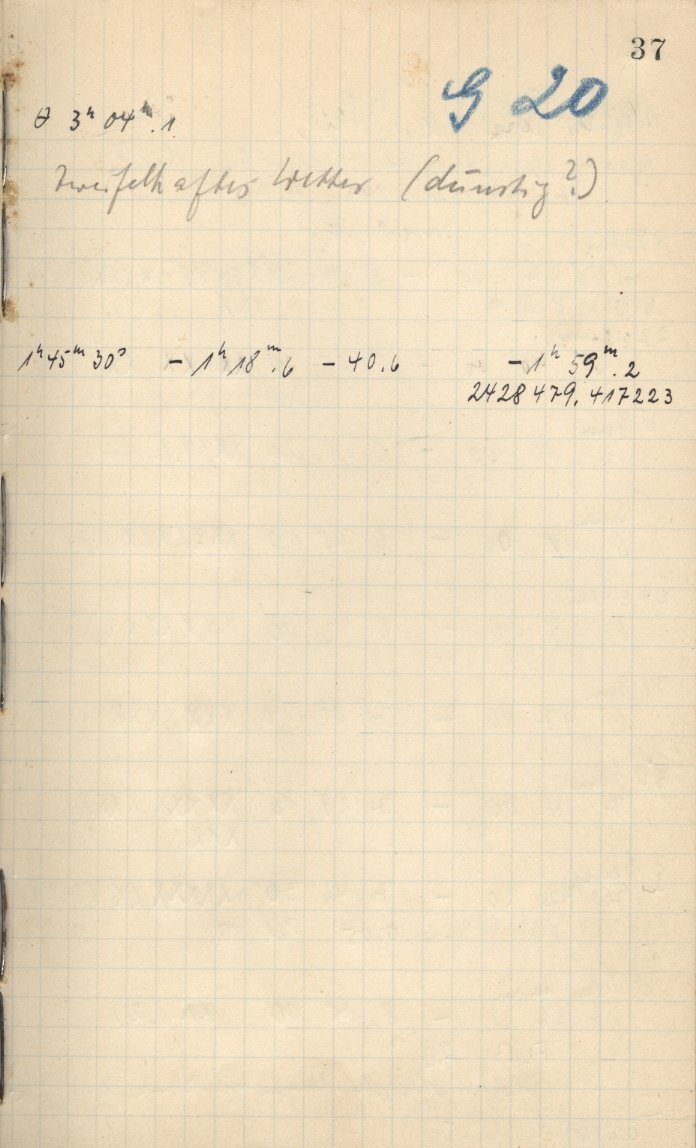 37
G 20
θ 3ʰ 04ᵐ.1
Zweifelhaftes Wetter (dunstig?)
1ʰ45ᵐ30ˢ – 1ʰ18ᵐ.6 – 40.6 – 1ʰ59ᵐ.2
2428479.417223